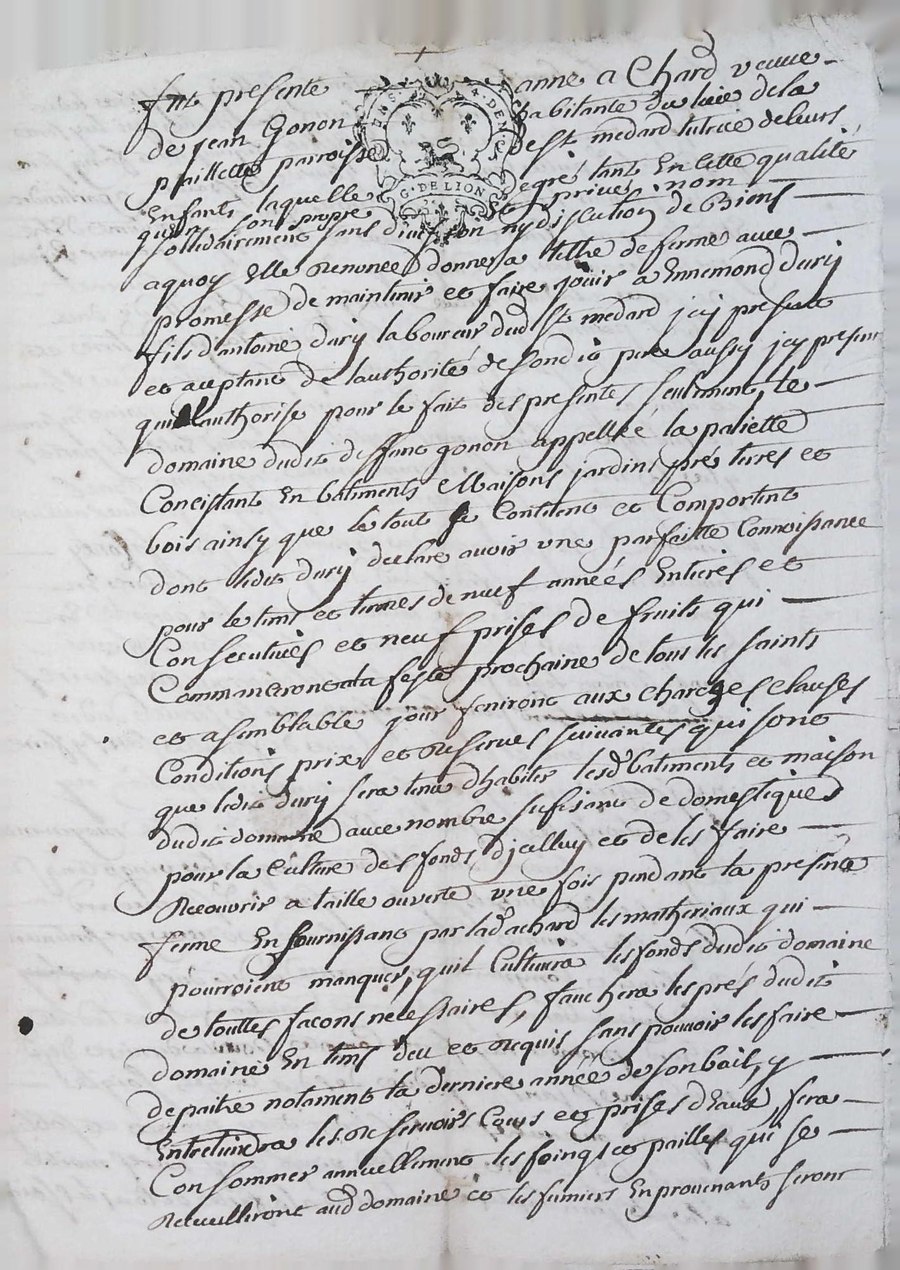 fut presente anne a Chard veuve
de jean Gonon habitante du lieu de la
paillette parroisse de st medard tutrice de leurs
Enfants laquelle de gré tant En cette qualité
qu'en son propre et privé nom
sollidairement sans division ny discution de Biens
a quoy Elle Renonce donne a tittre de ferme avec
promesse de maintenir et faire jouir a Ennemond dury
fils d'antoine dury laboureur dud st medard jcy present
et aceptant de l'authorité de son dit pere aussy jcy present
qui l'authorise pour le fait des presentes seulement, le
domaine dudit deffunt gonon appellée la paliette
Concistant En batiments Maisons jardins prés terres et
bois ainsy que le tout se Contient et Comportent
dont ledit dury declare avoir une parfaitte Connoissance
pour le tems et termes de neuf années Entieres et
Consecutives et neuf prises de fruits qui
Commanceront a la feste prochaine de tous les saints
et a semblable jour feniront aux charges clauses
Conditions prix et Reserves suivantes qui sont
que ledit dury sera tenu d'habiter lesd batiments et maison
dudit domaine avec nombre sufisant de domestiques
pour la Culture des fonds d'jcelluy et de les faire
Recouvrir a taille ouverte une fois pendant la presente
ferme En fournissant par lad achard les matheriaux qui
pourroient manquer, qu'il Cultivera les fonds dudit domaine
de touttes façons necessaires, fauchera les prés dudit
domaine En tems deu et Requis sans pouvoir les faire
depaitre notament la derniere année de son bail, y
Entretiendra les Reservoirs Cours et prises d'Eaux, fera
Consommer annuellement les foings et pailles qui se
Recueilliront aud domaine et les fumiers En provenants seront
G. DE LION